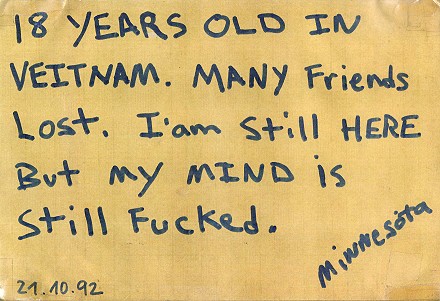 18 YEARS OLD IN
VEITNAM. MANY Friends
Lost. I'am Still HERE
But my MIND is
Still Fucked.
Minnesota
21.10.92